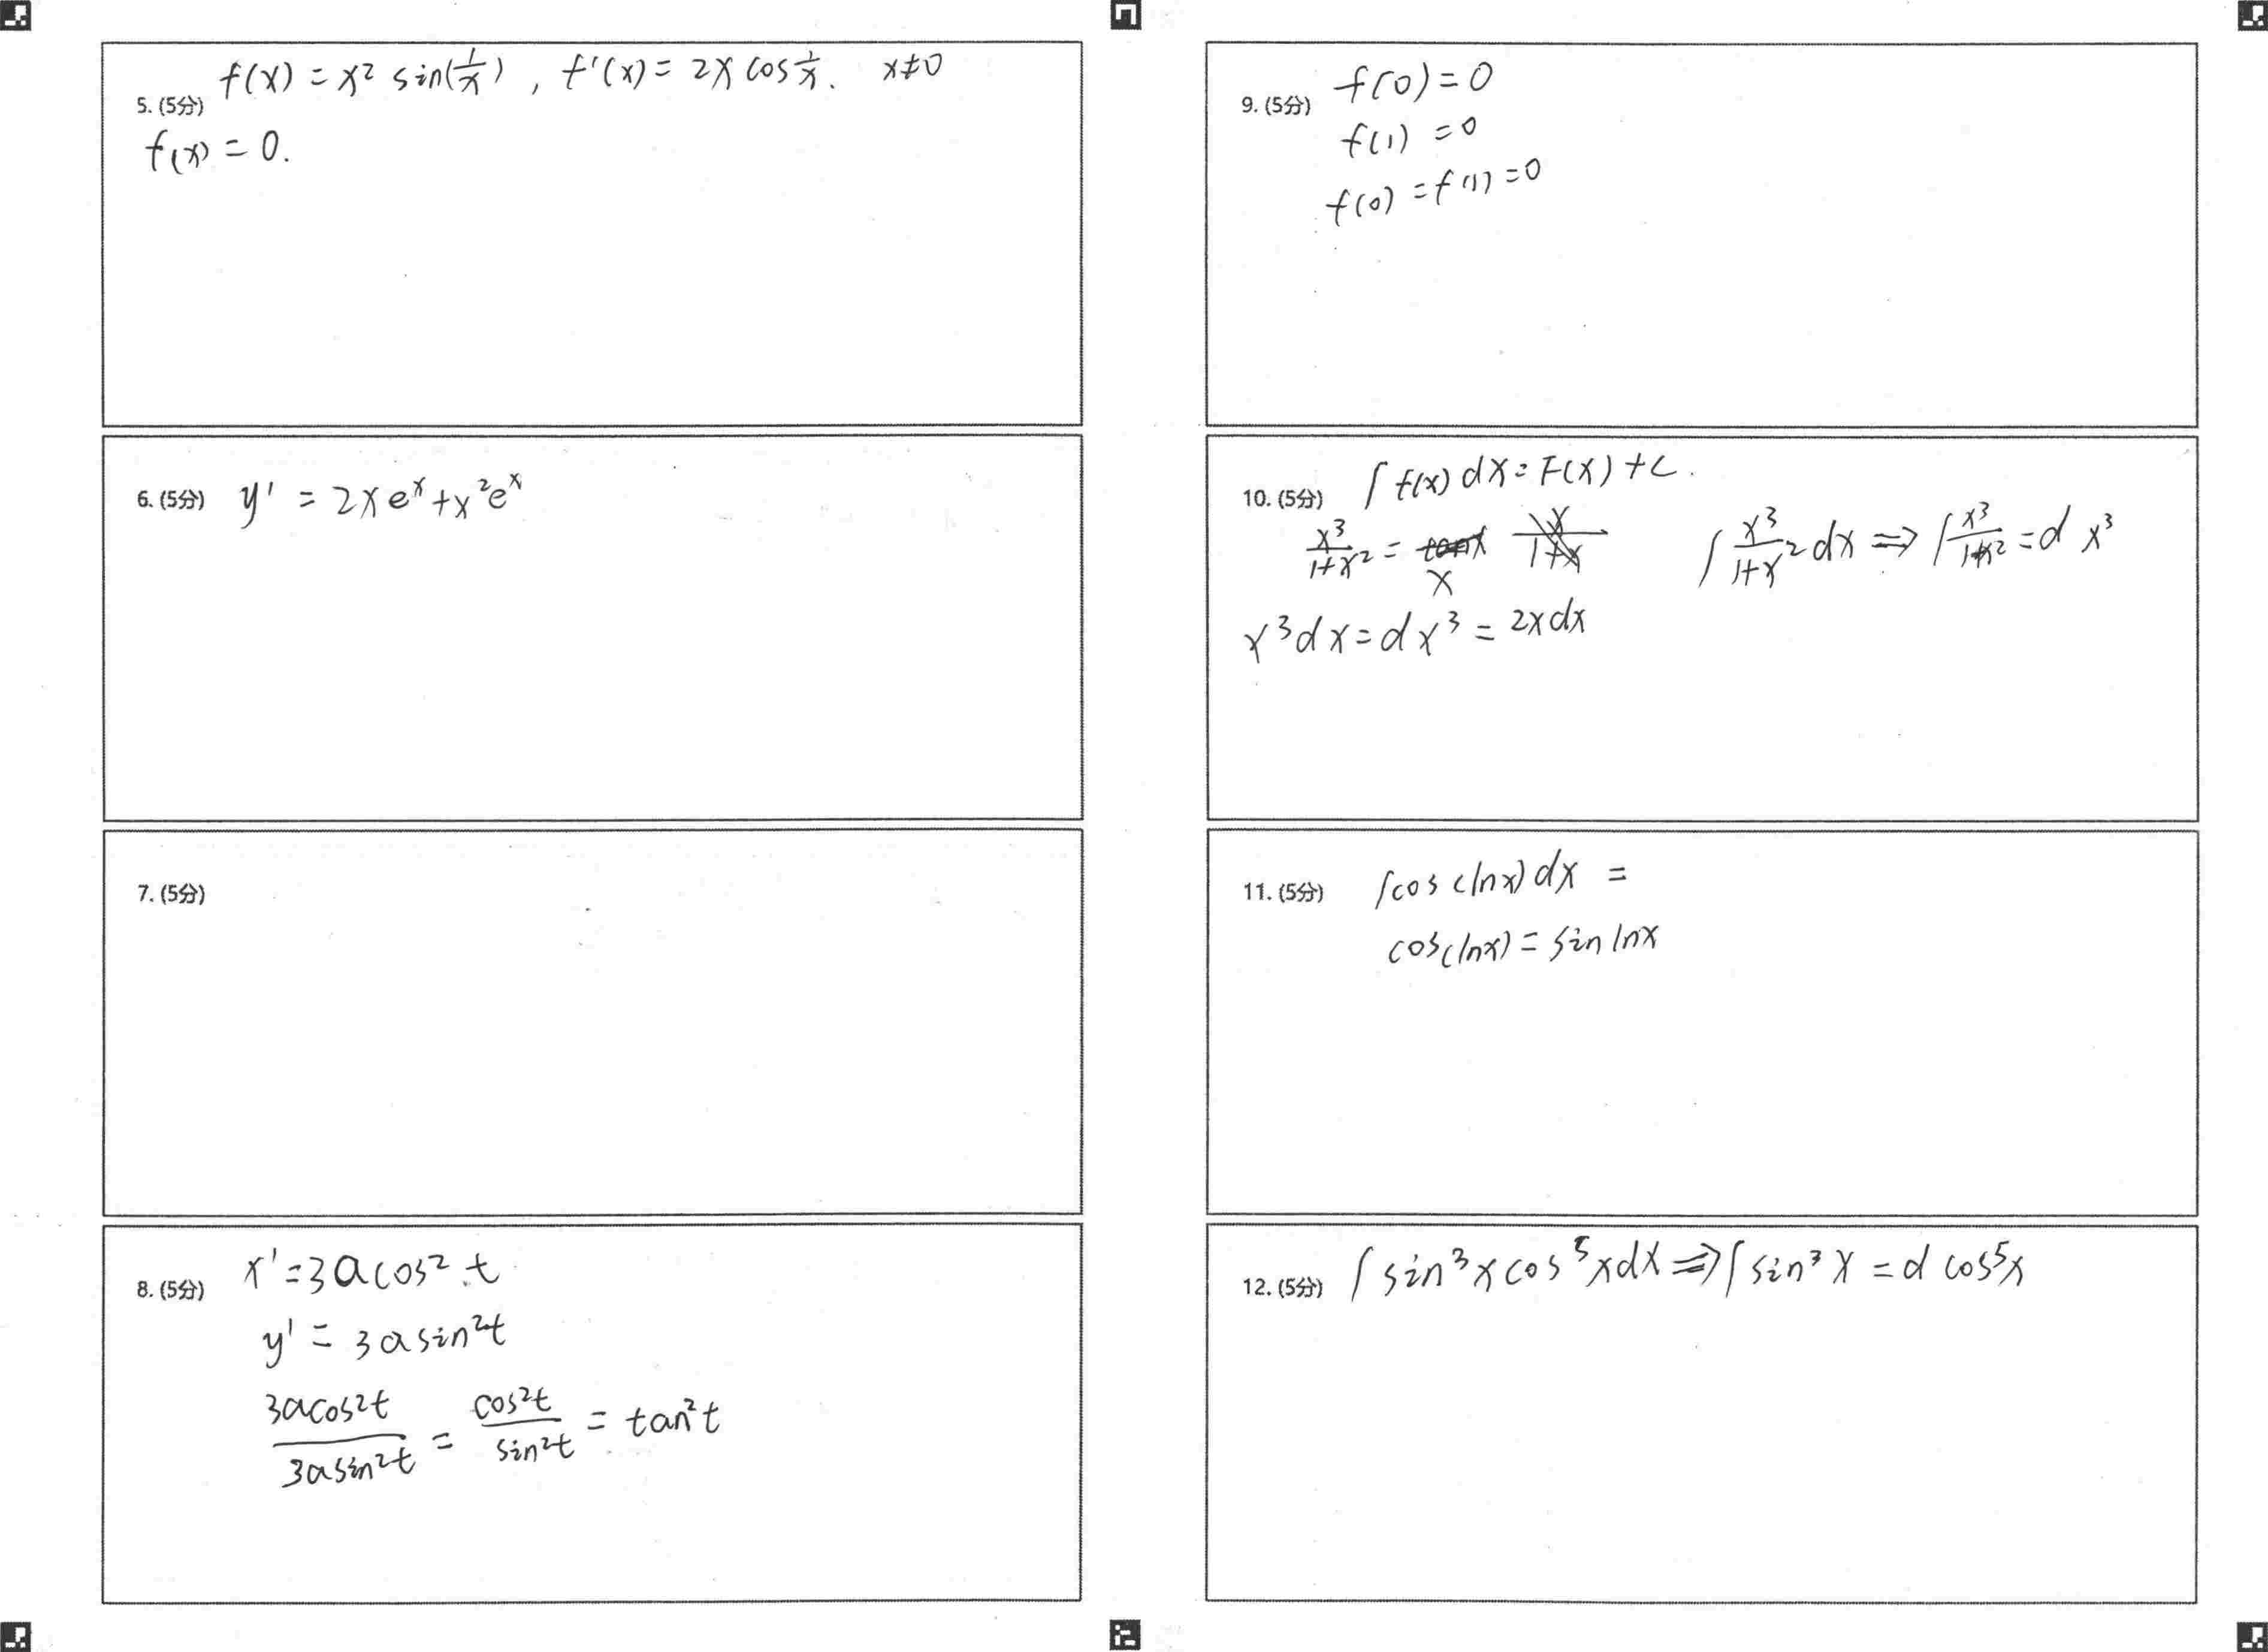 5. (5分) f(x) = x² sin(1/x) , f'(x) = 2x cos 1/x. x≠0
f(x) = 0.
6. (5分) y' = 2xeˣ+x²eˣ
7. (5分)
8. (5分) x' = 3acos² t
y' = 3asin²t
3acos²t/3asin²t = cos²t/sin²t = tan²t
9. (5分) f(0) = 0
f(1) = 0
f(0) = f(1) = 0
10. (5分) ∫ f(x) dx = F(x) + C.
x³/1+x² = x ∫ x³/1+x² dx ⇒ ∫ x³/1+x² = d x³
x³dx = dx³ = 2xdx
11. (5分) ∫cos(lnx)dx =
cos(lnx) = sin lnx
12. (5分) ∫ sin³xcos⁵xdx ⇒ ∫ sin³x = d cos⁵x